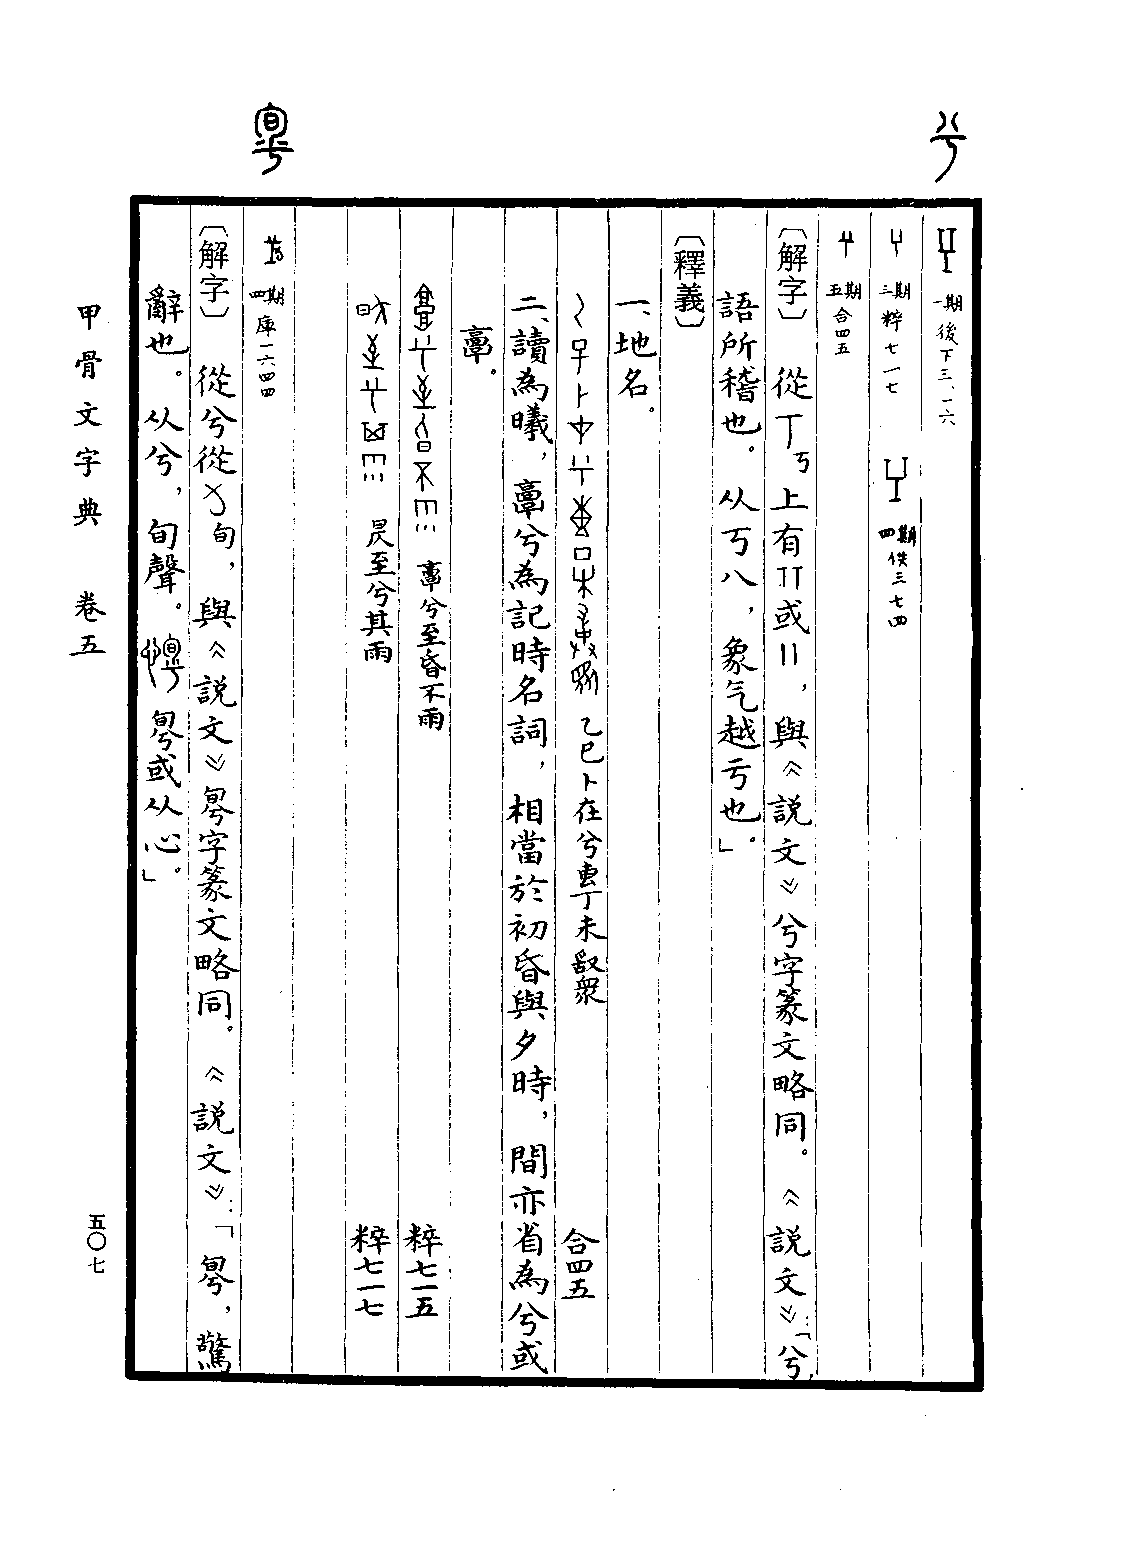 兮
一期後下三、一六
三期粹七一七 四期佚三七四
五期合四五
〔解字〕從丁丂上有丅丅或〢,與《説文》兮字篆文略同。《説文》:「兮,
語所稽也。从丂八,象气越亏也。」
〔釋義〕
一、地名。
乙巳卜在兮叀丁未㕡眾 合四五
二、讀為曦,𩫖兮為記時名詞,相當於初昏與夕時,間亦省為兮或
𩫖。
𩫖兮至昏不雨 粹七一五
昃至兮其雨 粹七一七
㝁
四期庫一六四四
〔解字〕從兮從旬,與《説文》字篆文略同。《説文》:「,驚
辭也。从兮,旬聲。或从心。」
甲骨文字典 卷五
五〇七